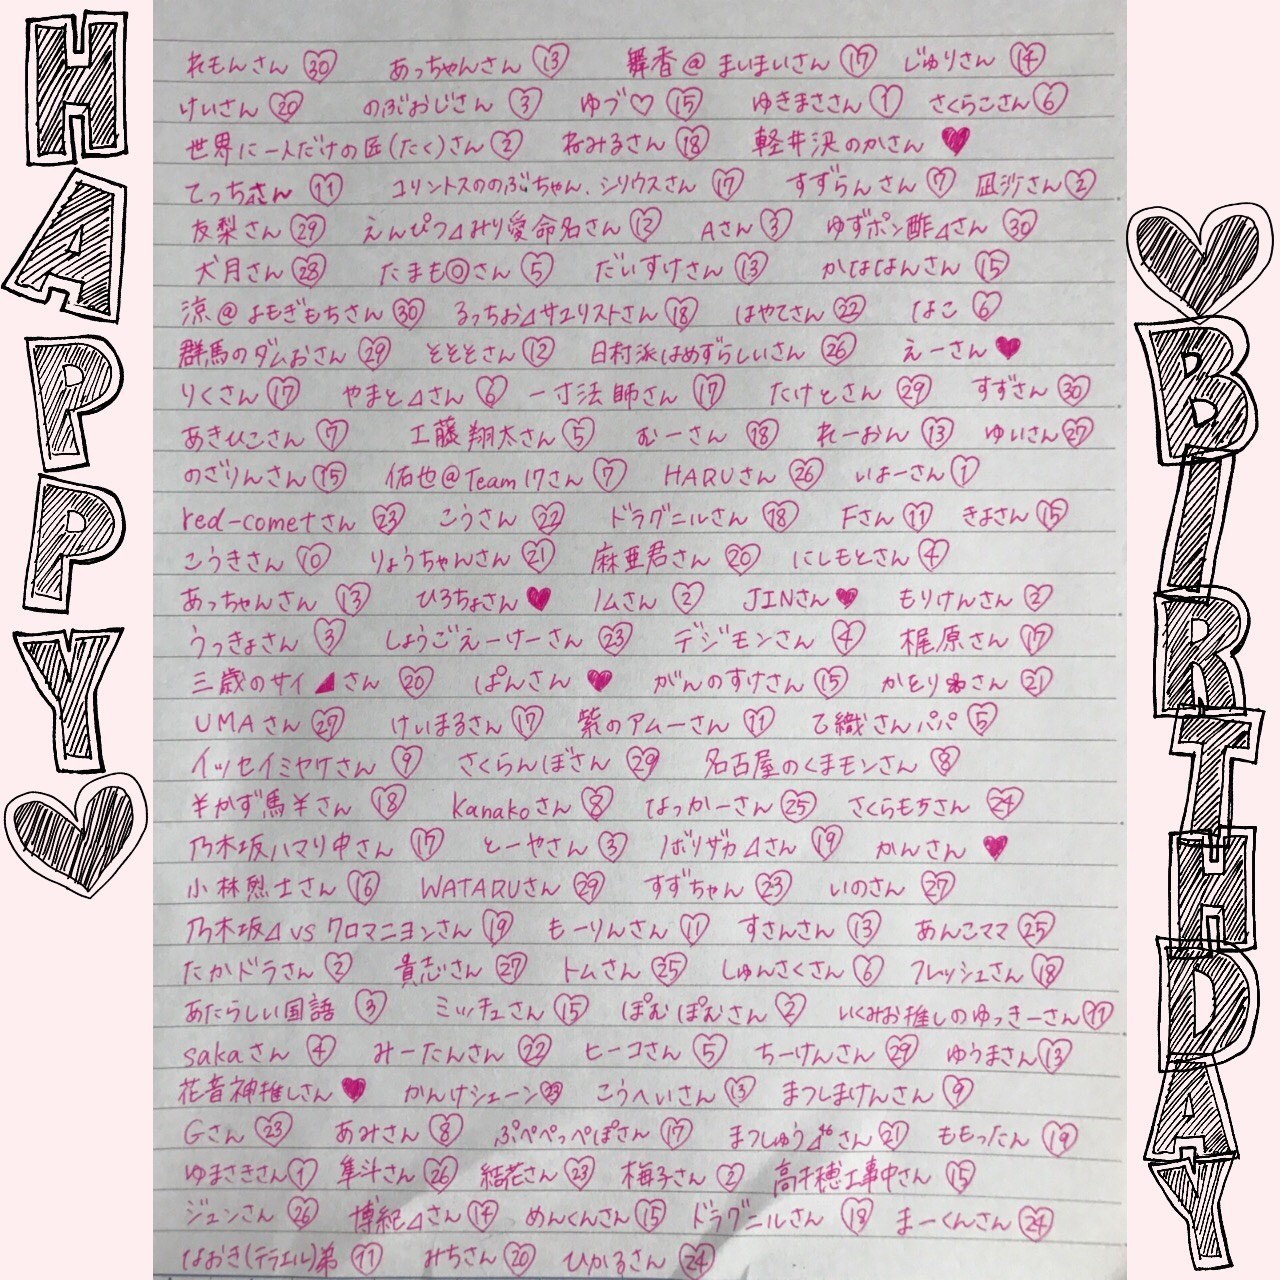 HAPPY
れもんさん 30 あっちゃんさん 13 舞香@まいまいさん 17 じゅりさん 14
けいさん 20 のぶおじさん 3 ゆづ♡ 15 ゆきまささん 1 さくらこさん 6
世界に一人だけの匠(たく)さん 2 ねみるさん 18 軽井沢のかさん ♥
てっちさん 11 コリントスののぶちゃん.シリウスさん 17 すずらんさん 7 凪沙さん 2
友梨さん 29 えんぴつ⊿みり愛命名さん 12 Aさん 3 ゆずポン酢⊿さん 30
犬月さん 28 たまも◎さん 5 だいすけさん 13 かなはんさん 15
涼@よもぎもちさん 30 るっちお⊿サユリストさん 18 はやてさん 22 なこ 6
群馬のダムおさん 29 そそそさん 12 日村派はめずらしいさん 26 えーさん ♥
りくさん 17 やまと⊿さん 6 一寸法師さん 17 たけとさん 29 すずさん 30
あきひこさん 7 工藤翔太さん 5 むーさん 18 れーおん 13 ゆいさん 27
のざりんさん 15 佑也@Team17さん 7 HARUさん 26 いはーさん 1
red-cometさん 23 こうさん 22 ドラグニルさん 18 Fさん 11 きよさん 15
こうきさん 10 りょうちゃんさん 21 麻亜君さん 20 にしもとさん 4
あっちゃんさん 13 ひろちょさん ♥ ノムさん 2 JINさん ♥ もりけんさん 2
うっきょさん 3 しょうごえーけーさん 23 デジモンさん 4 梶原さん 17
三歳のサイ◢さん 20 ぱんさん ♥ がんのすけさん 15 かとり❀さん 21
UMAさん 27 けいまるさん 17 紫のアムーさん 11 乙織さんパパ 5
イッセイミヤケさん 9 さくらんぼさん 29 名古屋のくまモンさん 8
¥かず馬¥さん 18 Kanakoさん 8 なっかーさん 25 さくらもちさん 24
乃木坂ハマり中さん 17 とーやさん 3 ノボリザカ⊿さん 19 かんさん ♥
小林烈士さん 16 WATARUさん 29 すずちゃん 23 いのさん 27
乃木坂⊿vsクロマニヨンさん 19 もーりんさん 11 すさんさん 13 あんこママ 25
たかドラさん 2 貴志さん 27 トムさん 25 しゅんさくさん 6 フレッシュさん 18
あたらしい国語 3 ミッチュさん 15 ぽむぽむさん 2 いくみお推しのゆっきーさん 11
sakaさん 4 みーたんさん 22 ヒーコさん 5 ちーけんさん 29 ゆうまさん 13
花音神推しさん ♥ かんけシェーン 23 こうへいさん 13 まつしまけんさん 9
Gさん 23 あみさん 8 ぷぺぺっぺぽさん 17 まつしゅう⊿⁴⁶さん 21 ももったん 19
ゆまさきさん 1 隼斗さん 26 結花さん 23 梅子さん 2 高千穂工事中さん 15
ジュンさん 26 博紀⊿さん 14 めんくんさん 15 ドラグニルさん 18 まーくんさん 24
なおき(テラエル)弟 11 みちさん 20 ひかるさん 24
BIRTHDAY